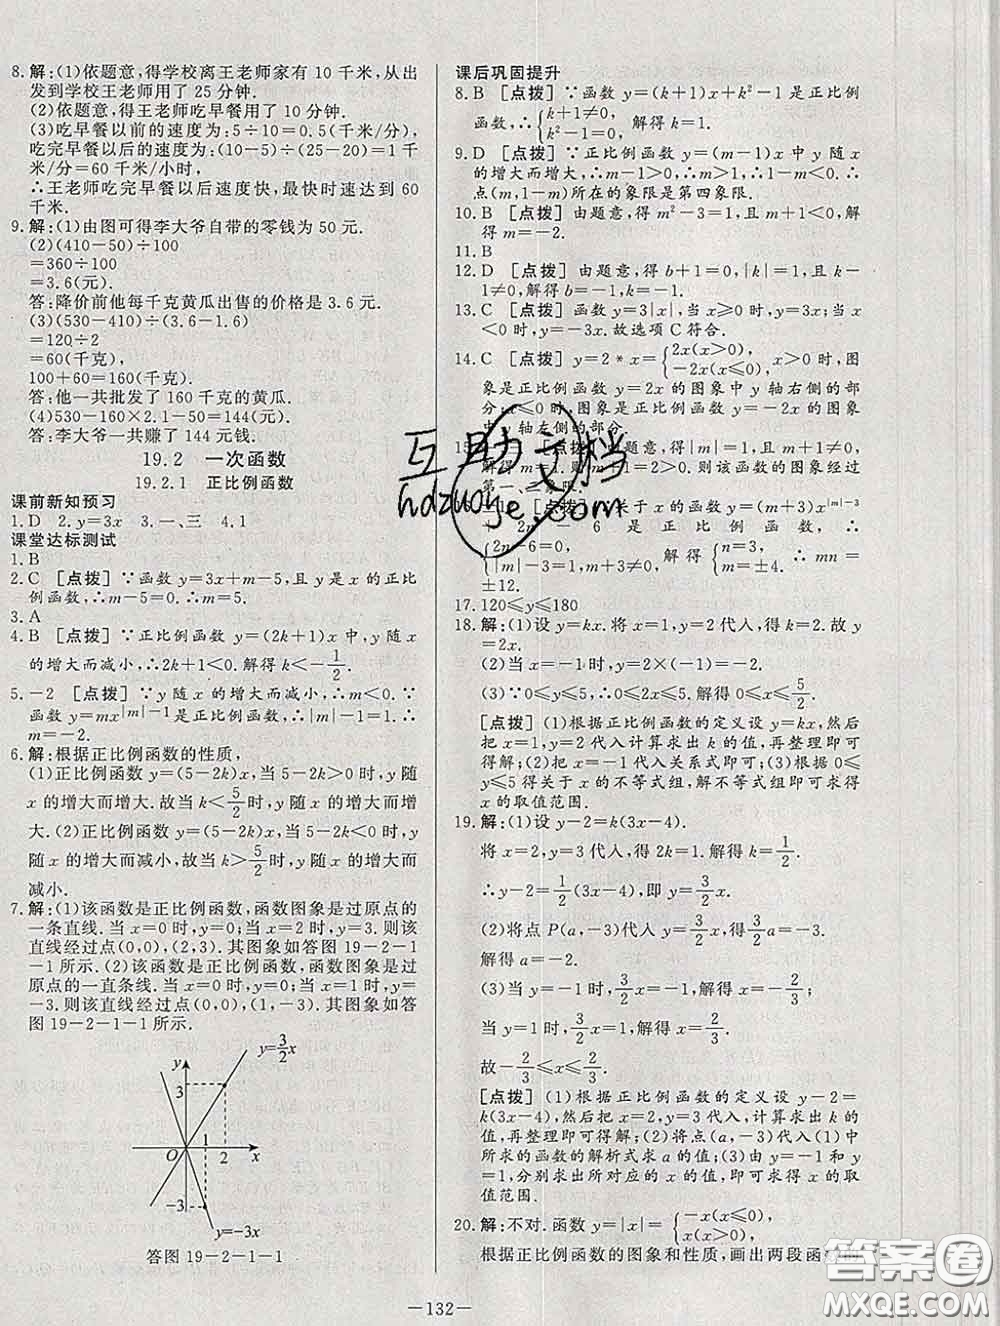 8. 解:(1)依题意,得学校离王老师家有 10 千米,从出
发到学校王老师用了 25 分钟.
(2)依题意,得王老师吃早餐用了 10 分钟.
(3)吃早餐以前的速度为:5÷10=0.5(千米/分),
吃完早餐以后的速度为:(10-5)÷(25-20)=1 千
米/分=60 千米/小时,
∴王老师吃完早餐以后速度快,最快时速达到 60
千米.
9. 解:(1)由图可得李大爷自带的零钱为 50 元.
(2)(410-50)÷100
=360÷100
=3.6(元).
答:降价前他每千克黄瓜出售的价格是 3.6 元.
(3)(530-410)÷(3.6-1.6)
=120÷2
=60(千克),
100+60=160(千克).
答:他一共批发了 160 千克的黄瓜.
(4)530-160×2.1-50=144(元).
答:李大爷一共赚了 144 元钱.
19.2 一次函数
19.2.1 正比例函数
课前新知预习
1. D 2. y=3x 3. 一、三 4. 1
课堂达标测试
1. B
2. C [点拨] ∵函数 y=3x+m-5,且 y 是 x 的正比
例函数,∴m-5=0. ∴m=5.
3. A
4. B [点拨] ∵正比例函数 y=(2k+1)x 中,y 随 x
的增大而减小,∴2k+1<0. 解得 k<-1/2.
5. -2 [点拨] ∵y 随 x 的增大而减小,∴m<0. ∵
函数 y=mx^|m|-1 是正比例函数,∴|m|-1=1. ∴
m=-2.
6. 解:根据正比例函数的性质,
(1)正比例函数 y=(5-2k)x,当 5-2k>0 时,y 随
x 的增大而增大. 故当 k<5/2时,y 随 x 的增大而增
大. (2)正比例函数 y=(5-2k)x,当 5-2k<0 时,y
随 x 的增大而减小,故当 k>5/2时,y 随 x 的增大而
减小.
7. 解:(1)该函数是正比例函数,函数图象是过原点的
一条直线. 当 x=0 时,y=0;当 x=2 时,y=3. 则该
直线经过点(0,0),(2,3). 其图象如答图 19-2-1-
-1 所示. (2)该函数是正比例函数,函数图象是过
原点的一直条线. 当 x=0 时,y=0;当 x=1 时,y=
-3. 则该直线经过点(0,0),(1,-3). 其图象如答
图 19-2-1-1 所示.
y
y=3/2x
3
1
O
2
x
-3
y=-3x
答图 19-2-1-1
课后巩固提升
8. B [点拨] ∵函数 y=(k+1)x+k²-1 是正比例
函数,∴{k+1≠0, k²-1=0. 解得 k=1.
9. D [点拨] ∵正比例函数 y=(m-1)x 中 y 随 x
的增大而增大,∴m-1>0,∴m>1,∴1-m<0. ∴
点(m,1-m)所在的象限是第四象限.
10. B [点拨] 由题意,得 m²-3=1,且 m+1<0,解
得 m=-2.
11. B
12. D [点拨] 由题意,得 b+1=0,|k|=1,且 k-
1≠0,解得 b=-1,k=-1.
13. C [点拨] 函数 y=3|x|,当 x≥0时,y=3x;当 x
<0时,y=-3x. 故选项 C 符合.
14. C [点拨] y=2*x={2x(x>0), -2x(x≤0), x>0 时,图
象是正比例函数 y=2x 的图象中 y 轴右侧的部
分;x≤0 时,图象是正比例函数 y=-2x 的图象
中 y 轴左侧的部分.
[点拨] 由题意,得|m|=1,且 m+1≠0,
解得 m=1. ∵m=1>0. 则该函数的图象经过
第一、三象限.
[点拨] 关于 x 的函数 y=(m+3)x^|m|-3
+ 2n - 6 是 正 比 例 函 数, ∴
{2n-6=0, |m|-3=1. 解得 {n=3, m=±4. ∴ mn =
±12.
17. 120≤y≤180
18. 解:(1)设 y=kx. 将 x=1,y=2 代入,得 k=2. 故 y
=2x.
(2)当 x=-1 时,y=2×(-1)=-2.
(3)∵0≤y≤5,∴0≤2x≤5. 解得 0≤x≤5/2.
[点拨] (1)根据正比例函数的定义设 y=kx,然后
把 x=1,y=2 代入计算求出 k 的值,再整理即可
得解;(2)把 x=-1 代入关系式即可;(3)根据 0≤
y≤5 得关于 x 的不等式组,解不等式组即可求得
x 的取值范围.
19. 解:(1)设 y-2=k(3x-4).
将 x=2,y=3 代入,得 2k=1. 解得 k=1/2.
∴y-2=1/2(3x-4),即 y=3/2x.
(2)将点 P(a,-3)代入 y=3/2x,得3/2a=-3.
解得 a=-2.
(3)当 y=-1 时,3/2x=-1,解得 x=-2/3;
当 y=1 时,3/2x=1,解得 x=2/3.
故-2/3≤x≤2/3.
[点拨] (1)根据正比例函数的定义设 y-2=
k(3x-4),然后把 x=2,y=3 代入,计算求出 k 的
值,再整理即可得解;(2)将点(a,-3)代入(1)中
所求的函数的解析式求 a 的值;(3)由 y=-1 和 y
=1,分别求出所对应的 x 的值,即可求得 x 的取
值范围.
20. 解:不对. 函数 y=|x|={-x(x≤0), x(x>0),
根据正比例函数的图象和性质,画出两段函
—132—
互助文档
hdzuoye.com
答案圈
MXQE.COM